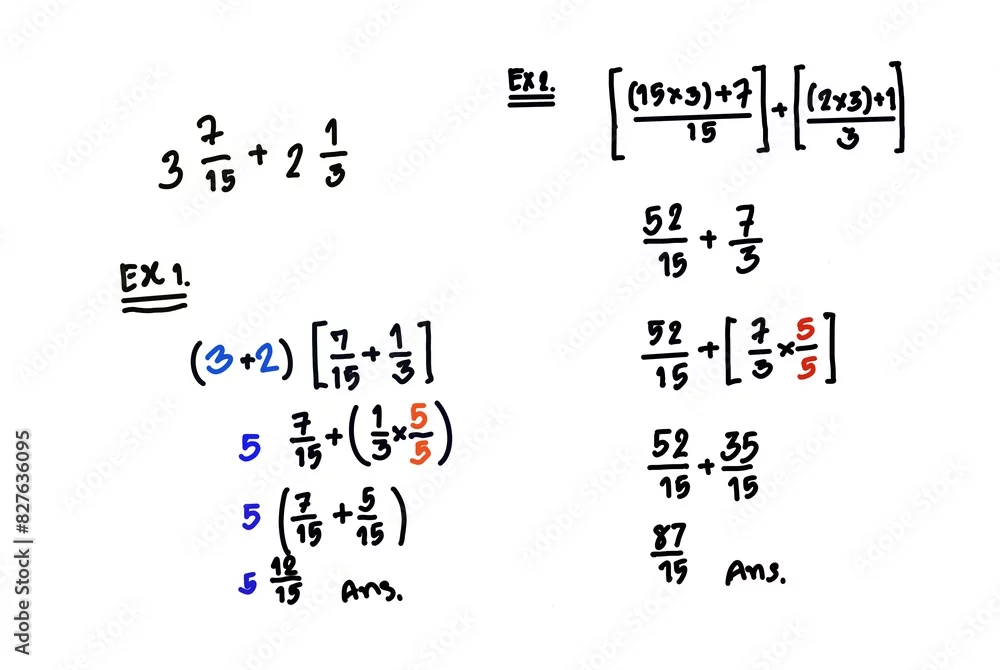 3 7/15 + 2 1/3
EX 1.
(3+2) [7/15 + 1/3]
5 7/15 + (1/3 × 5/5)
5 (7/15 + 5/15)
5 12/15 Ans.
EX 2.
[(15×3)+7/15] + [(2×3)+1/3]
52/15 + 7/3
52/15 + [7/3 × 5/5]
52/15 + 35/15
87/15 Ans.
Adobe Stock | #827636095
Adobe Stock